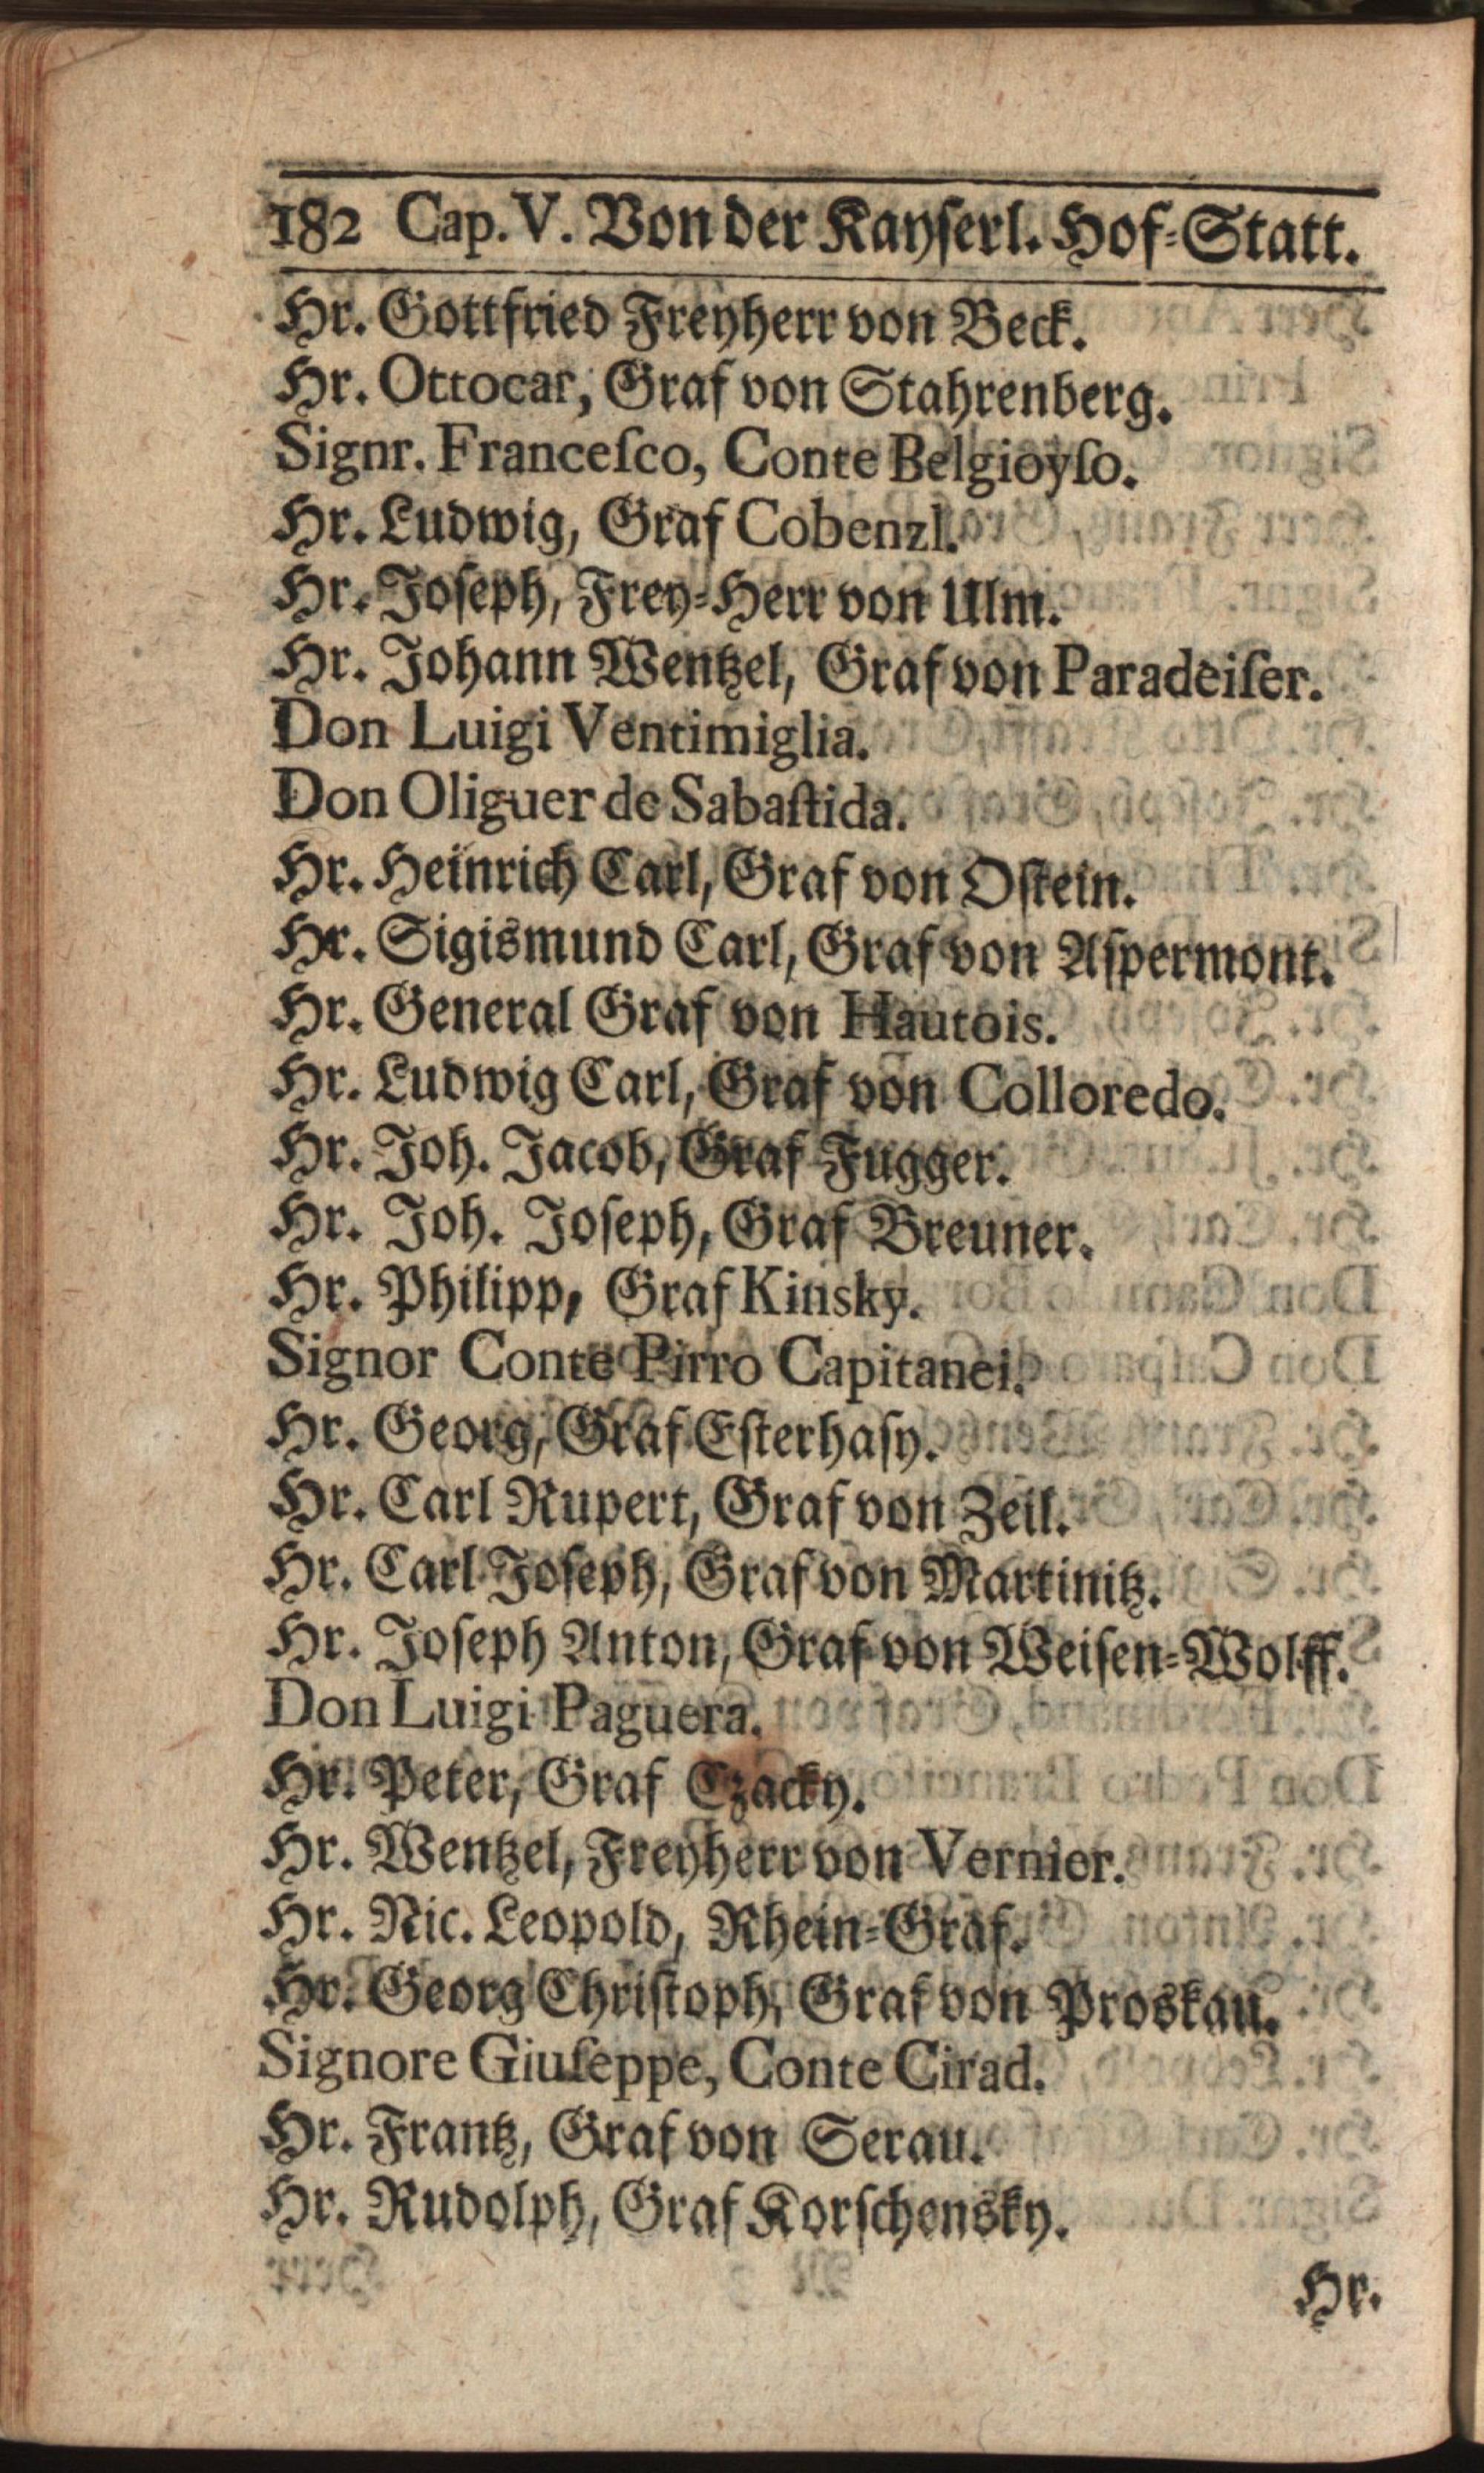 182 Cap. V. Von der Kayſerl. Hof-Statt.
Hr. Gottfried Freyherr von Beck.
Hr. Ottocar, Graf von Stahrenberg.
Signr. Franceſco, Conte Belgioyſo.
Hr. Ludwig, Graf Cobenzl.
Hr. Joſeph, Frey-Herr von Ulm.
Hr. Johann Wentzel, Graf von Paradeiſer.
Don Luigi Ventimiglia.
Don Oliguer de Sabaſtida.
Hr. Heinrich Carl, Graf von Oſtein.
Hr. Sigismund Carl, Graf von Aſpermont.
Hr. General Graf von Hautois.
Hr. Ludwig Carl, Graf von Colloredo.
Hr. Joh. Jacob, Graf Fugger.
Hr. Joh. Joſeph, Graf Breuner.
Hr. Philipp, Graf Kinsky.
Signor Conte Pirro Capitanei.
Hr. Georg, Graf Eſterhaſy.
Hr. Carl Rupert, Graf von Zeil.
Hr. Carl Joſeph, Graf von Martinitz.
Hr. Joſeph Anton, Graf von Weiſen-Wolff.
Don Luigi Paguera.
Hr. Peter, Graf Czacky.
Hr. Wentzel, Freyherr von Vernier.
Hr. Nic. Leopold, Rhein-Graf.
Hr. Georg Chriſtoph, Graf von Proskau.
Signore Giuſeppe, Conte Cirad.
Hr. Frantz, Graf von Serau.
Hr. Rudolph, Graf Korſchensky.
Hr.